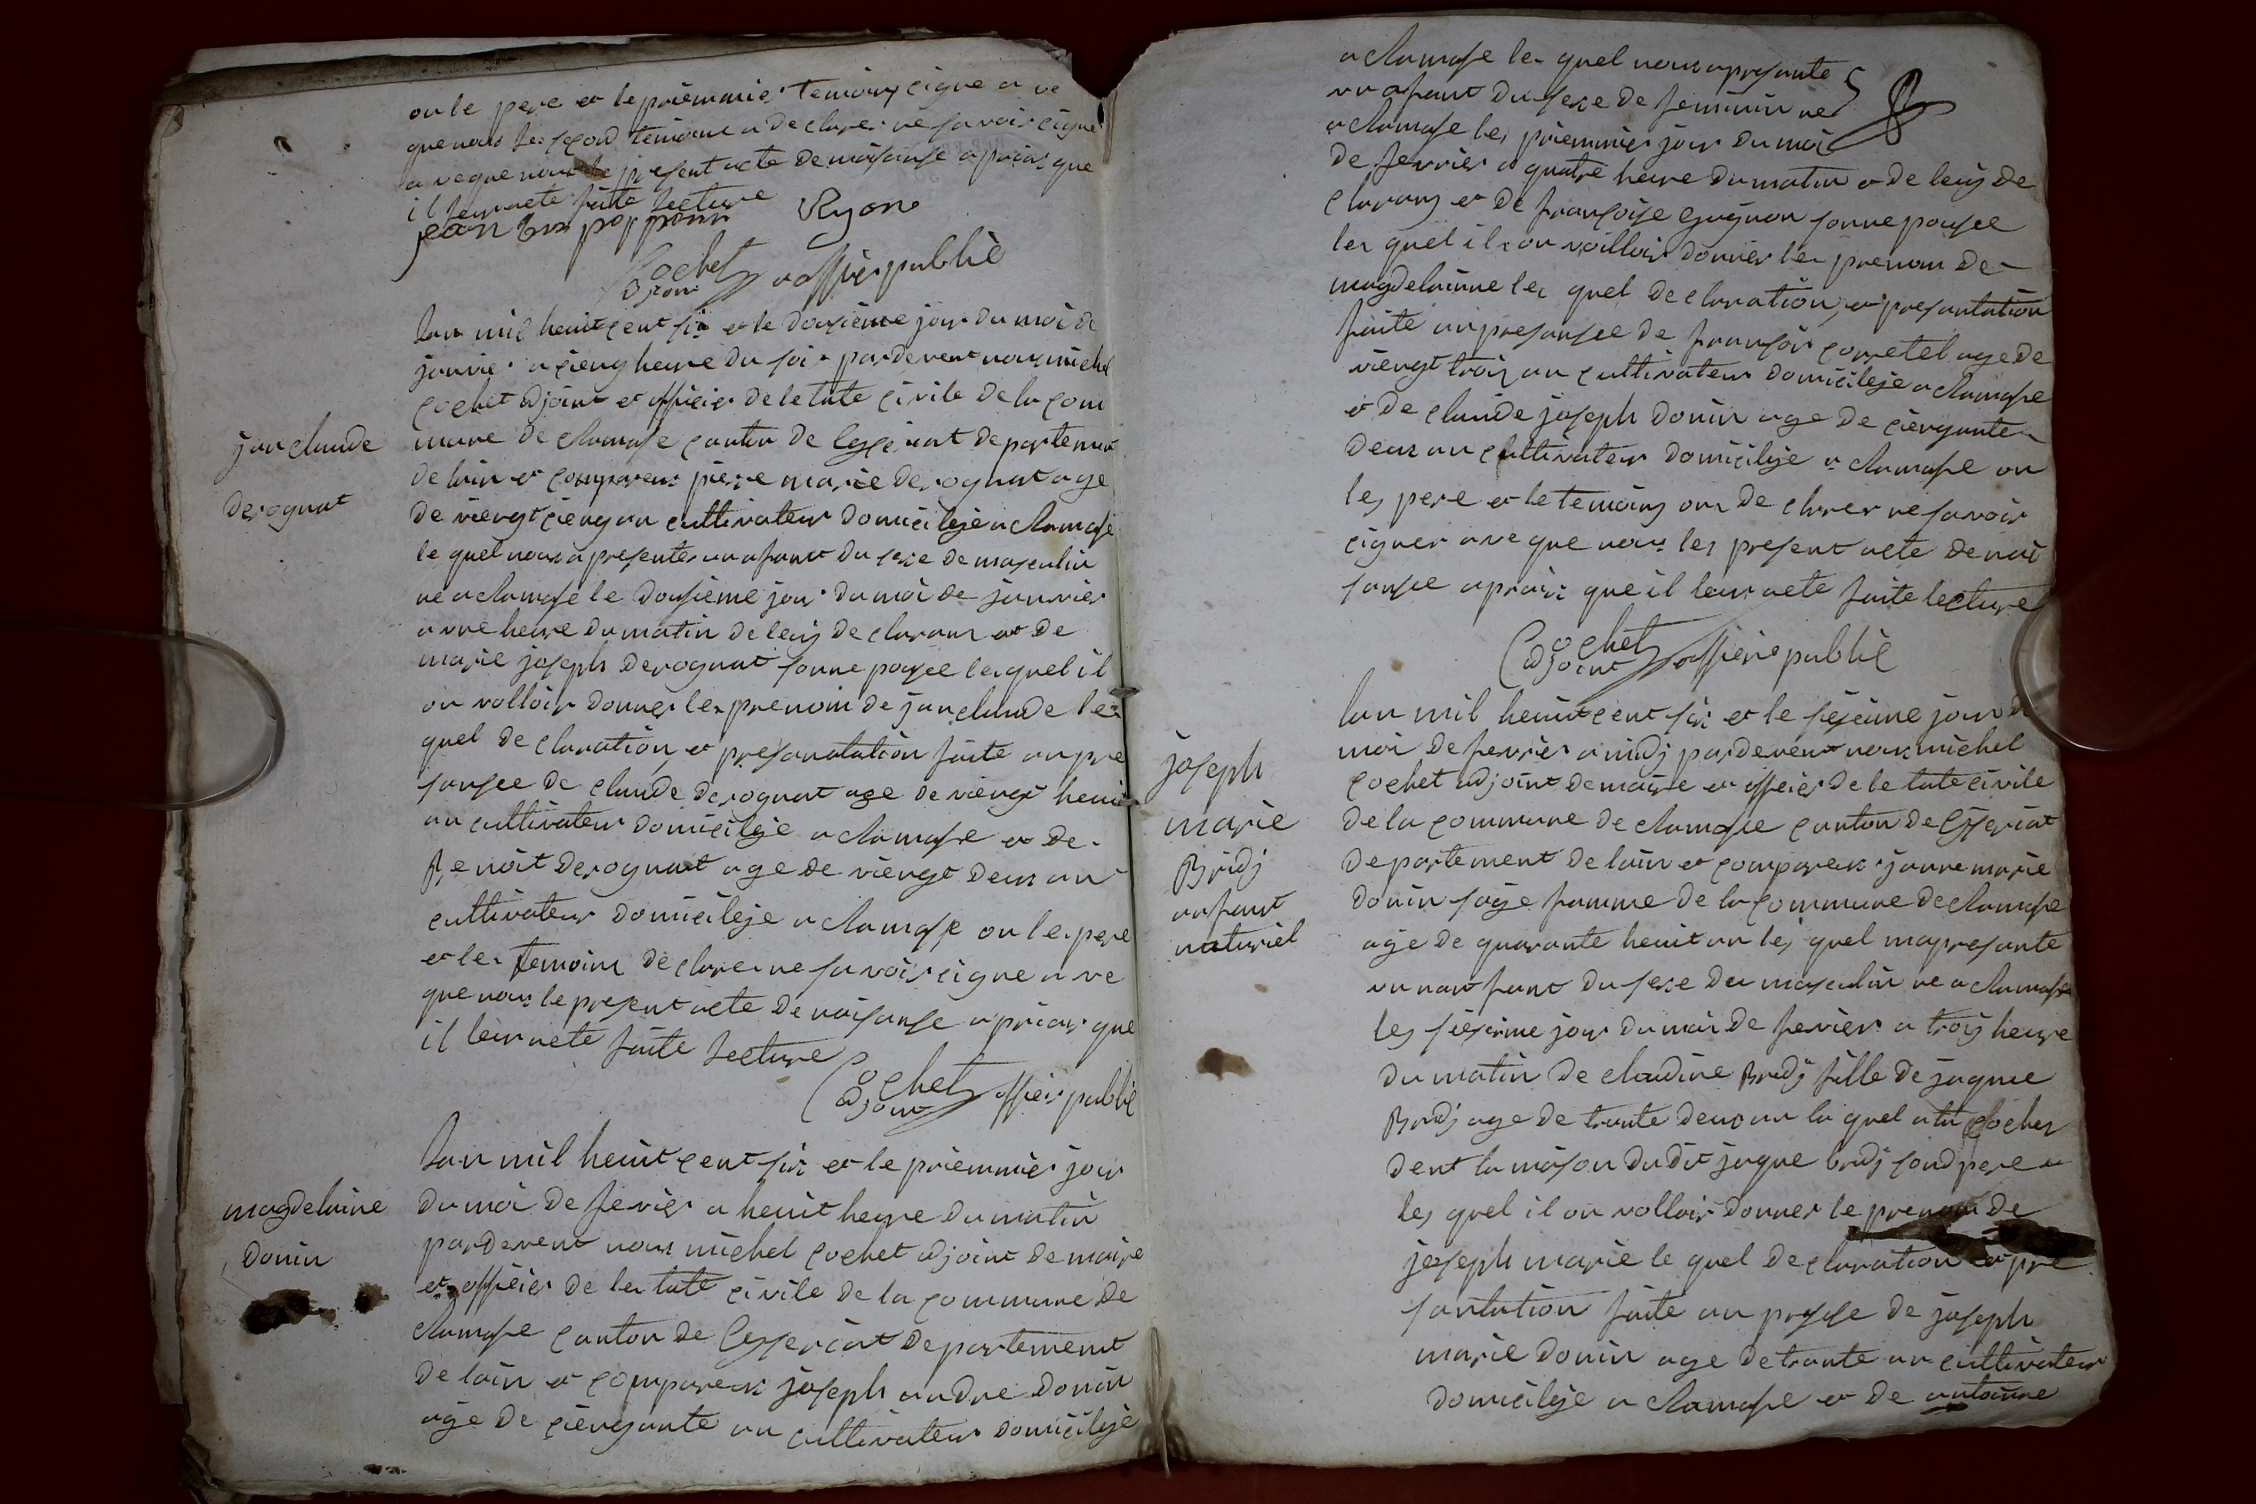 ou le pere et le priemmier temoiny cigne a ve
que nous le segond temoint a declarer ne savoir cigne
a ve que nous le present acte de naisanse a priais que
il leur aete faite lecture
jean poppon Ryon
Cochet adjoint offisier publiè
lan mil heuit cent six et le dousieme jour du moi de
janvier a cienq heure du soir pardevent nous michel
cochet adjoint et offisier de le tate civile de la com
mune de chamase canton de Ceyseriat departement
de lain et compareus piere marie derognat age
de viengt cienq an cultivateur domicilije a chamase
le quel nous a presenter un afant du sexe de masculin
ne a chamase le dousieme jour du moi de janvier
a une heure du matin de leuj declarans et de
marie joseph derognat sonne pousee lesquel il
on volloir donner les prenoin de jan claude les
quel declaration et presantation faite an pre
sansee de claude derognat age de viengt heuit
an cultivateur domicilije a chamase et de
Benoit derognat age de viengt deus an
cultivateur domicilije a chamase ou le pere
et les temoins declarer ne savoir cigne a ve
que nous le present acte de naisanse a priais que
il leur aete faite lecture
Cochet adjoint offisier publiè
jan claude
derognat
lan mil heuit cent six et le priemmier jour
du moi de fevrier a heuit heure du matin
pardevent nous michel cochet adjoint de maire
et offisier de le tate civile de la commune de
chamase canton de Ceyseriat departement
de lain et compareus joseph andre donin
age de ciengante an cultivateur domicilije
magdelaine
donin
a chamase les quel nous a presante
un afant du sexe de feminin ne
a chamase les priemmier jour du moi
de fevrier a quatre heure du matin et de leuj de
clarans et de fransoise gugnon sonne pousee
les quel il on voilloir donner les prenom de
magdelainne les quel declaration et presantation
faite an presansee de fransoi corretel age de
viengt troij an cultivateur domicilije a chamase
et de claude joseph donin age de ciengante
deus an cultivateur domicilije a chamase ou
les pere et le temoins on declarer ne savoir
cigner a ve que nous les present acte de nai
sansee a priais que il leur aete faite lecture
Cochet adjoint offisier publiè
lan mil heuit cent six et le siesieme jour du
moi de fevrier a midj pardevent nous michel
cochet adjoint de maire et offisier de le tate civile
de la commune de chamase canton de Ceyseriat
departement de lain et compareus janne marie
donin sage famme de la commune de chamase
age de quarante heuit an les quel ma presante
un nanfant du sexe du masculin ne a chamase
les siesieme jour du moi de fevrier a troij heure
du matin de claudine Bridj fille de jaque
Bridj age de trante deus an la quel a tu cocher
dent la maison dudit jaque bridj sond pere a
les quel il on volloir donner le prenom de
joseph marie le quel declaration et pre
santation faite an presse de joseph
marie donin age de trante an cultivateur
domicilije a chamase et de antoinne
joseph
marie
Bridj
anfant
naturiel